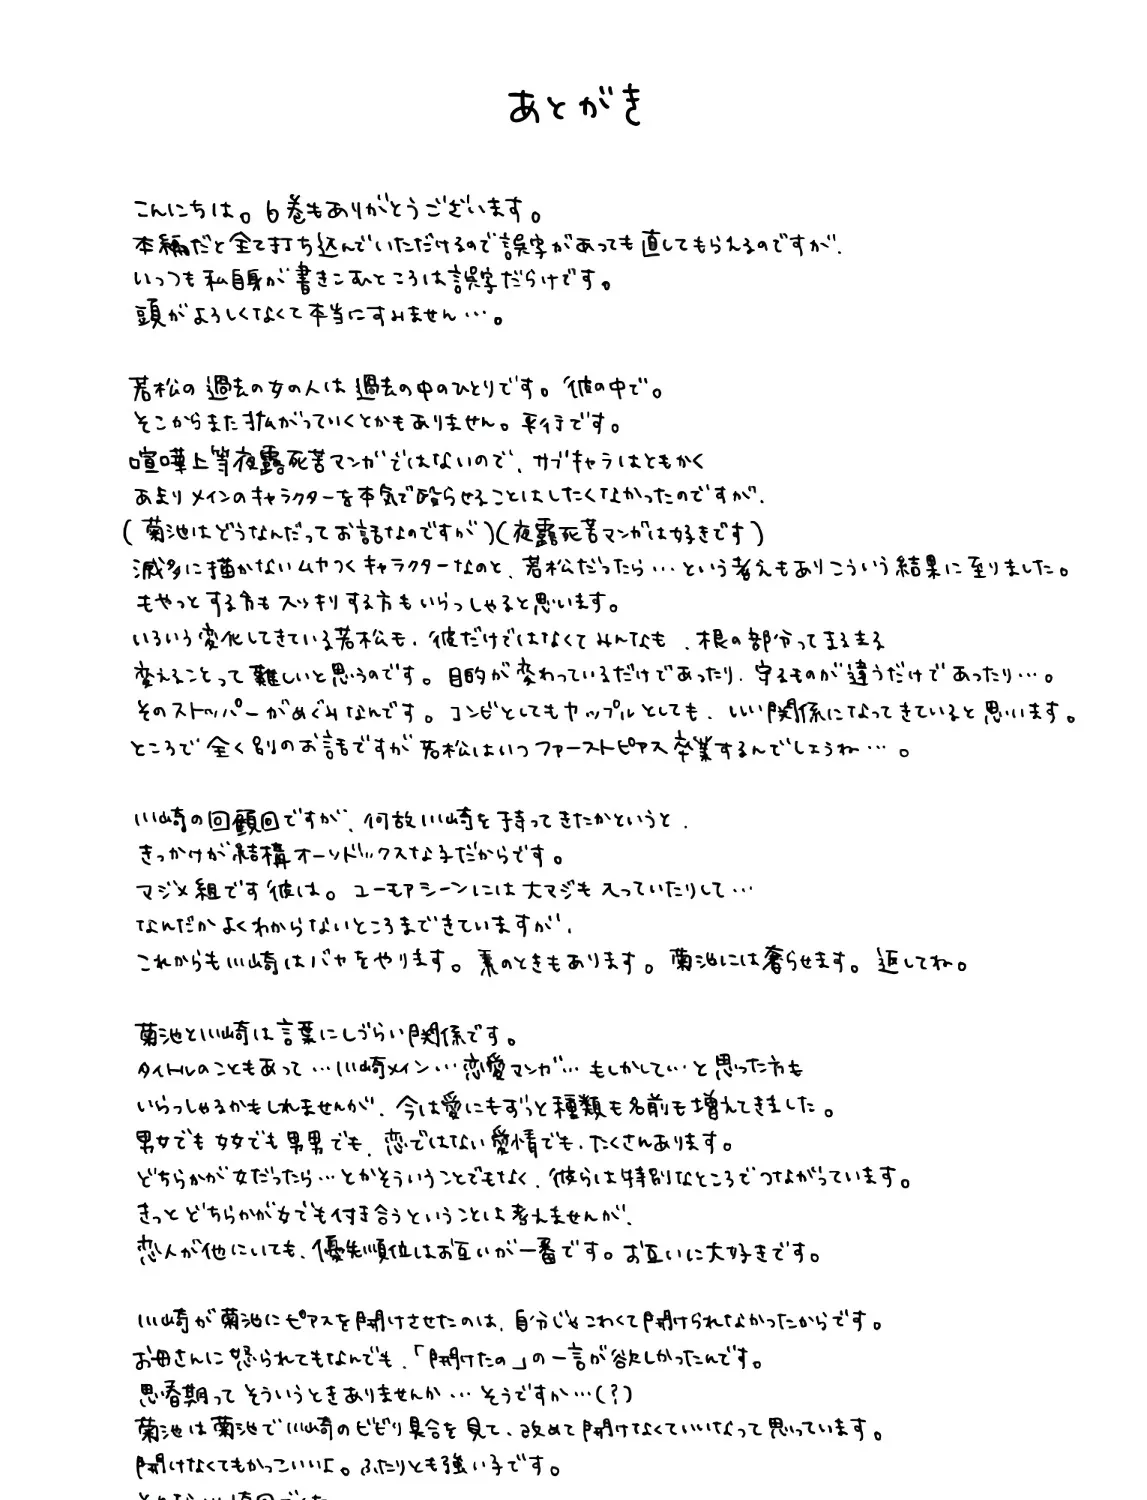 あとがき
こんにちは。6巻もありがとうございます。
本編だと全て打ち込んでいただけるので誤字があっても直してもらえるのですが、
いっつも私自身が書きこむところは誤字だらけです。
頭がよろしくなくて本当にすみません…。
若松の過去の女の人は過去の中のひとりです。彼の中で。
そこからまた拡がっていくとかもありません。平行です。
喧嘩上等夜露死苦マンガではないので、サブキャラはともかく
あまりメインのキャラクターを本気で殴らせることはしたくなかったのですが、
(菊池はどうなんだってお話なのですが)(夜露死苦マンガは好きです)
滅多に描かないムカつくキャラクターなのと、若松だったら…という考えもありこういう結果に至りました。
もやっとする方もスッキリする方もいらっしゃると思います。
いろいろ変化してきている若松も、彼だけではなくてみんなも、根の部分ってまるまる
変えることって難しいと思うのです。目的が変わっているだけであったり、守るものが違うだけであったり…。
そのストッパーがめぐみなんです。コンビとしてもカップルとしても、いい関係になってきていると思います。
ところで全く別のお話ですが若松はいつファーストピアス卒業するんでしょうね…。
川崎の回顧回ですが、何故川崎を持ってきたかというと、
きっかけが結構オーソドックスな子だからです。
マジメ組です彼は。ユーモアシーンには大マジも入っていたりして…
なんだかよくわからないところまできていますが、
これからも川崎はバカをやります。素のときもあります。菊池には奢らせます。返してね。
菊池と川崎は言葉にしづらい関係です。
タイトルのこともあって…川崎メイン…恋愛マンガ…もしかして…と思った方も
いらっしゃるかもしれませんが、今は愛にもずっと種類も名前も増えてきました。
男女でも女女でも男男でも、恋ではない愛情でも、たくさんあります。
どちらかが女だったら…とかそういうことでもなく、彼らは特別なところでつながっています。
きっとどちらかが女でも付き合うということは考えませんが、
恋人が他にいても、優先順位はお互いが一番です。お互いに大好きです。
川崎が菊池にピアスを開けさせたのは、自分じゃこわくて開けられなかったからです。
お母さんに怒られてもなんでも、「開けたの」の一言が欲しかったんです。
思春期ってそういうときありませんか…そうですか…(?)
菊池は菊池で川崎のビビり具合を見て、改めて開けなくていいなって思っています。
開けなくてもかっこいいよ。ふたりとも強い子です。